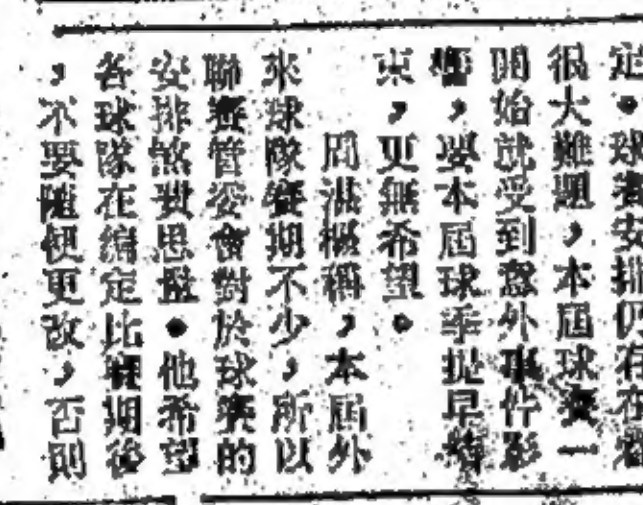 定。球賽安排仍有存着
很大難題，本屆球賽一
開始就受到意外事件影
響，要本屆球季提早結
束，更無希望。
周湛樵稱，本屆外
來球隊賽期不少，所以
聯賽管委會對於球賽的
安排煞費思量。他希望
各球隊在編定比賽期後
，不要隨便更改，否則